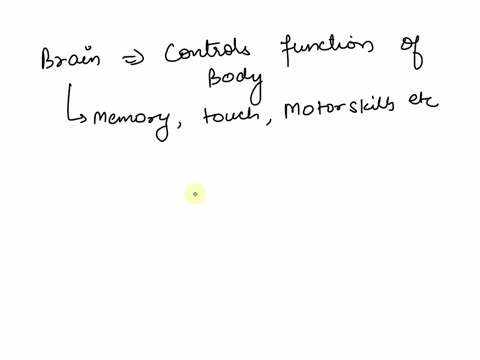 Brain ⇒ Controls function of
Body
↳ Memory, touch, Motorskills etc